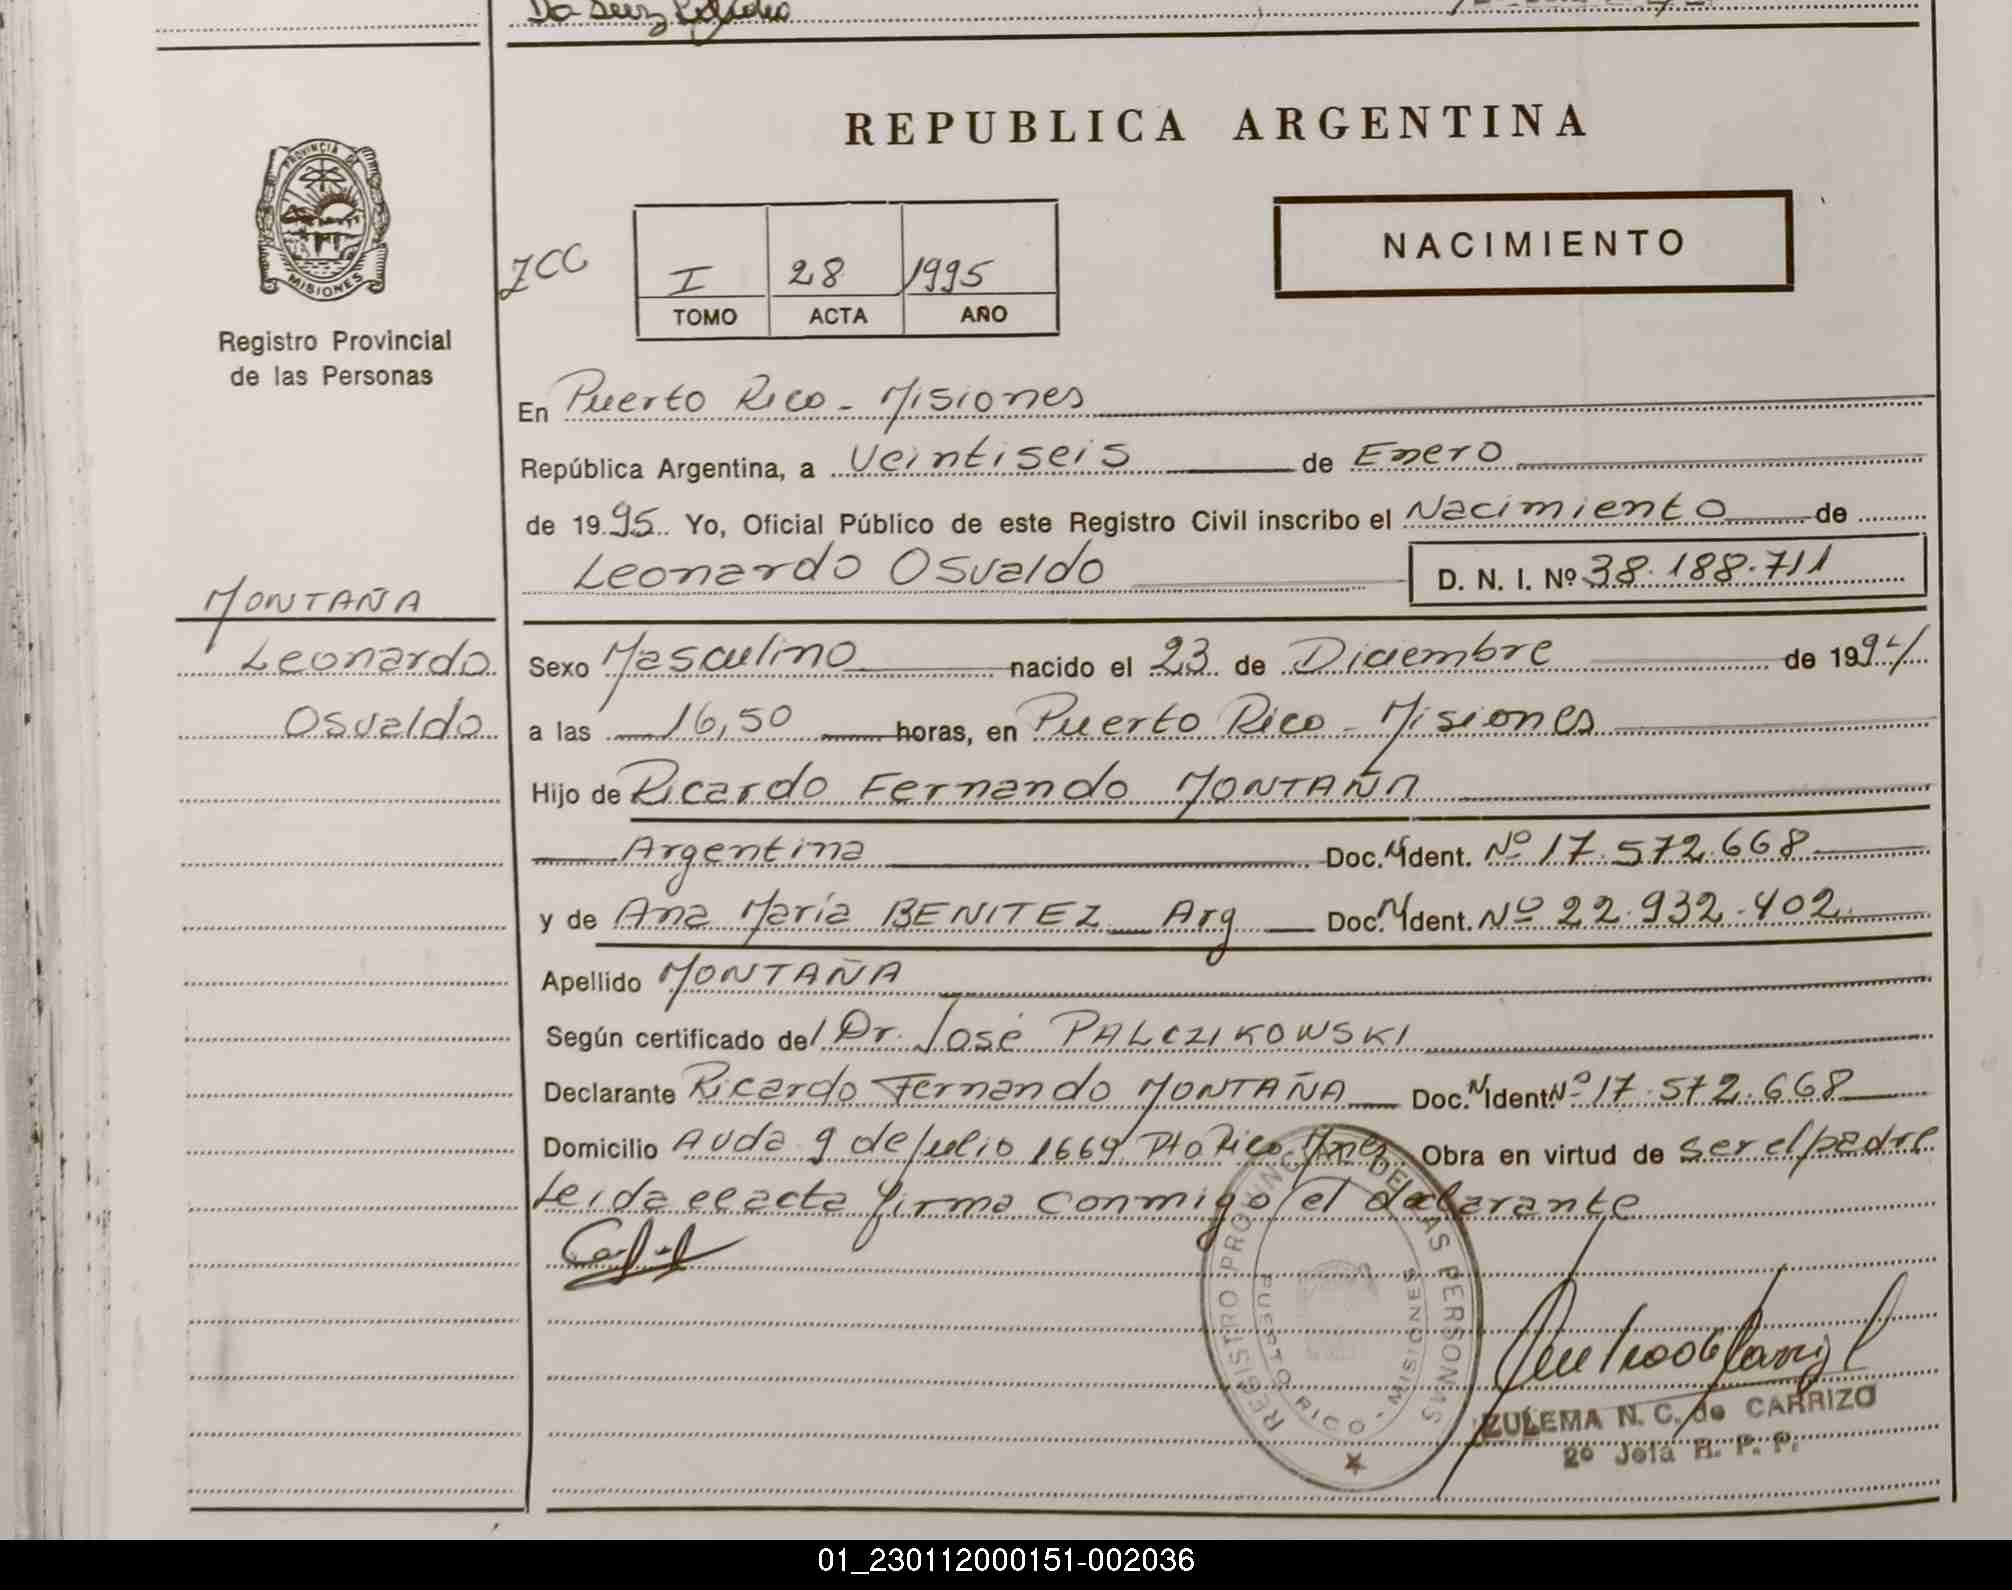 REPUBLICA ARGENTINA
PROVINCIA DE
MISIONES
Registro Provincial
de las Personas
I 28 1995
TOMO ACTA AÑO
NACIMIENTO
En Puerto Rico - Misiones
República Argentina, a Veintiseis de Enero
de 1995. Yo, Oficial Público de este Registro Civil inscribo el Nacimiento de
Leonardo Osvaldo D. N. I. Nº 38.188.711
MONTAÑA
Leonardo
Osvaldo
Sexo Masculino nacido el 23 de Diciembre de 1994
a las 16,50 horas, en Puerto Rico - Misiones
Hijo de Ricardo Fernando MONTAÑA
Argentina Doc. N Ident. Nº 17.572.668
y de Ana María BENITEZ Arg Doc. N Ident. Nº 22.932.402
Apellido MONTAÑA
Según certificado del Dr. José PALCZIKOWSKI
Declarante Ricardo Fernando MONTAÑA Doc. N Ident. Nº 17.572.668
Domicilio Avda 9 de Julio 1669 Pto Rico Mnes Obra en virtud de ser el padre
Leida el acta firma conmigo el declarante
REGISTRO PROVINCIAL DE LAS PERSONAS
PUERTO RICO - MISIONES
ZULEMA N. C. de CARRIZO
2º Jefa R. P. P.
01_230112000151-002036